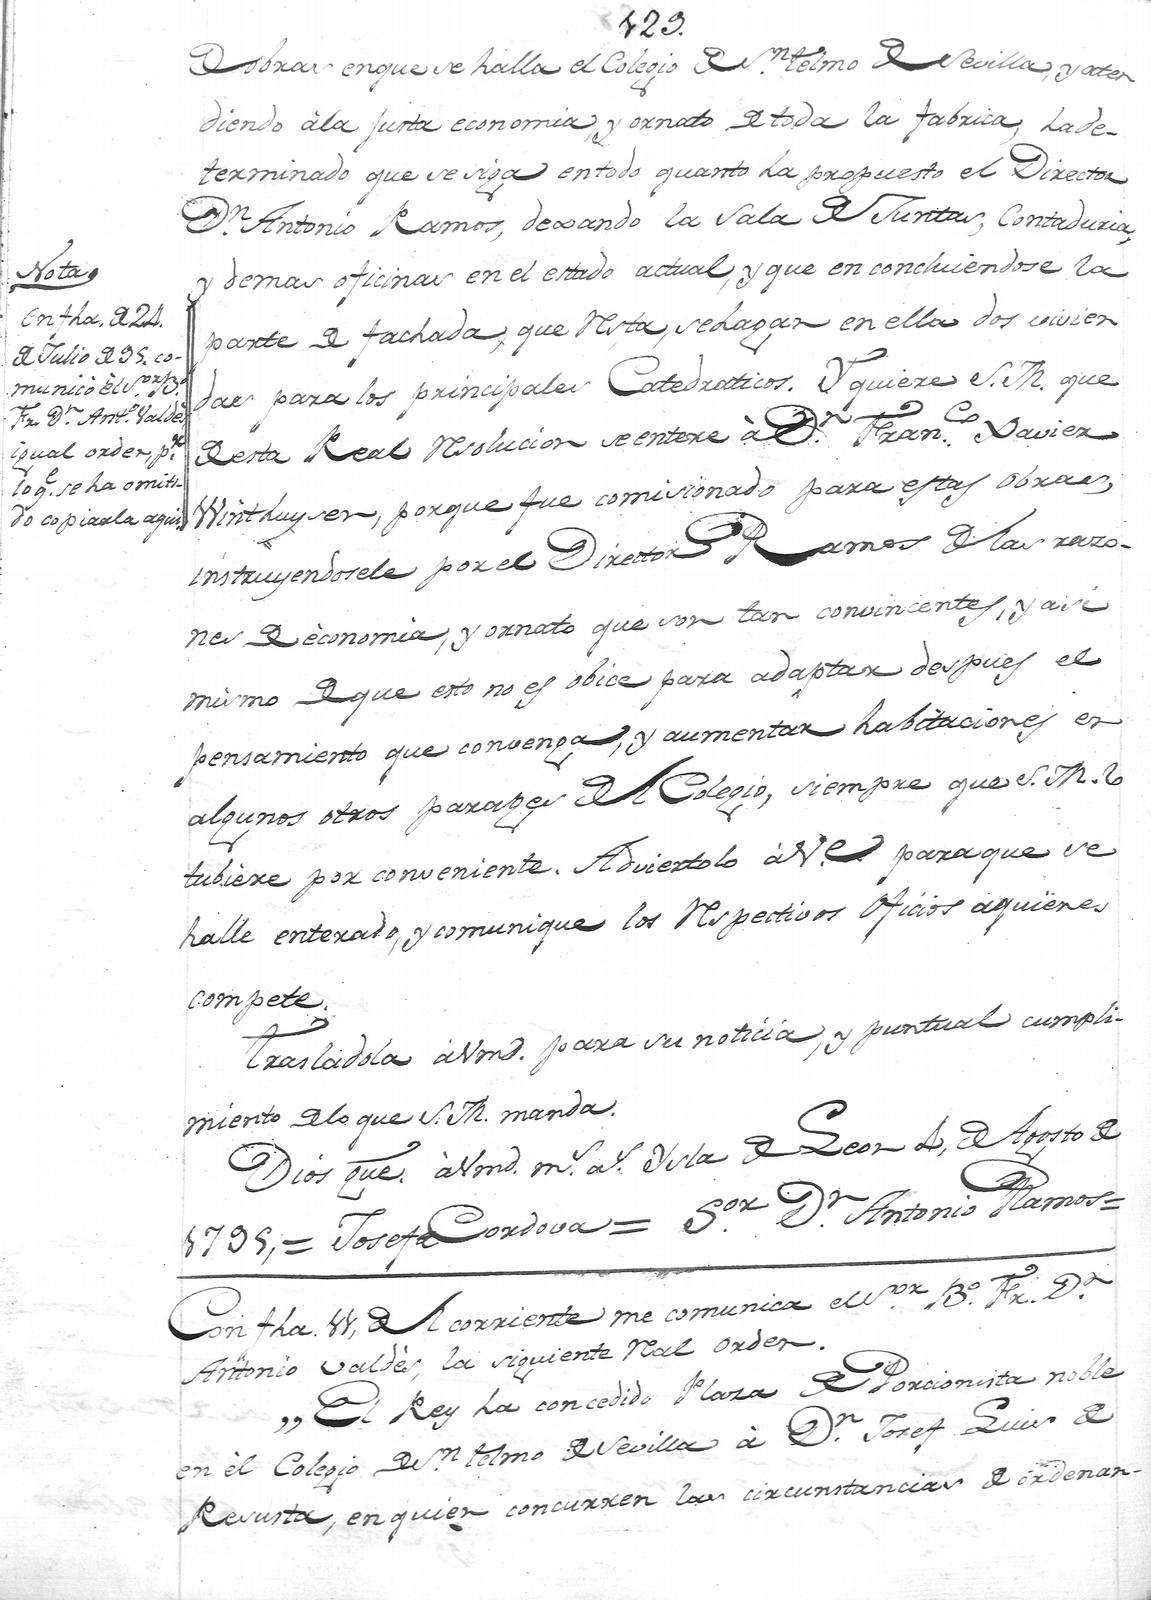 123.
De obras en que se halla el Colegio de Sn. telmo de Sevilla, y aten
diendo à la justa economia, y ornato de toda la fabrica, ha de-
terminado que se siga en todo quanto ha propuesto el Director
Dn. Antonio Ramos, dexando la Sala de Juntas, Contaduria,
y demas oficinas en el estado actual, y que en concluiendose la
parte de fachada, que resta, se hagan en ella dos vivien
das para los principales Catedraticos. Y quiere S. M. que
de esta Real resolucion se entere à Dn. Franco. Xavier
Winthuysen, porque fue comisionado para estas obras,
instruyendosele por el Director Ramos de las razo-
nes de èconomia, y ornato que son tan convincentes, y asi
mismo de que esto no es obice para adaptar despues el
pensamiento que convenga, y aumentar habitaciones en
algunos otros parages del Colegio, siempre que S. M. lo
tubiere por conveniente. Adviertolo à V.e para que se
halle enterado, y comunique los respectivos oficios a quienes
compete.
Nota,
en fha. de 24.
de Julio de 95. co-
municò èl S.or B.o
Fr. Dn. Anto. Valdès
igual orden, pr.
lo q.e se ha omiti-
do copiarla aqui.
Trasládola à Vmd. para su noticia, y puntual cumpli-
miento de lo que S. M. manda.
Dios gue. à Vmd. ms. as. Ysla de Leon 4, de Agosto de
1795, = Josef de Cordova = S.or Dn. Antonio Ramos =
Con fha. 11, del corriente me comunica el S.or B.o Fr. Dn.
Antonio Valdès, la siguiente real orden.
„ El Rey ha concedido Plaza de Porcionista noble
en èl Colegio de Sn. telmo de Sevilla à Dn. Josef Luis de
Resusta, en quien concurren las circunstancias de ordenan-